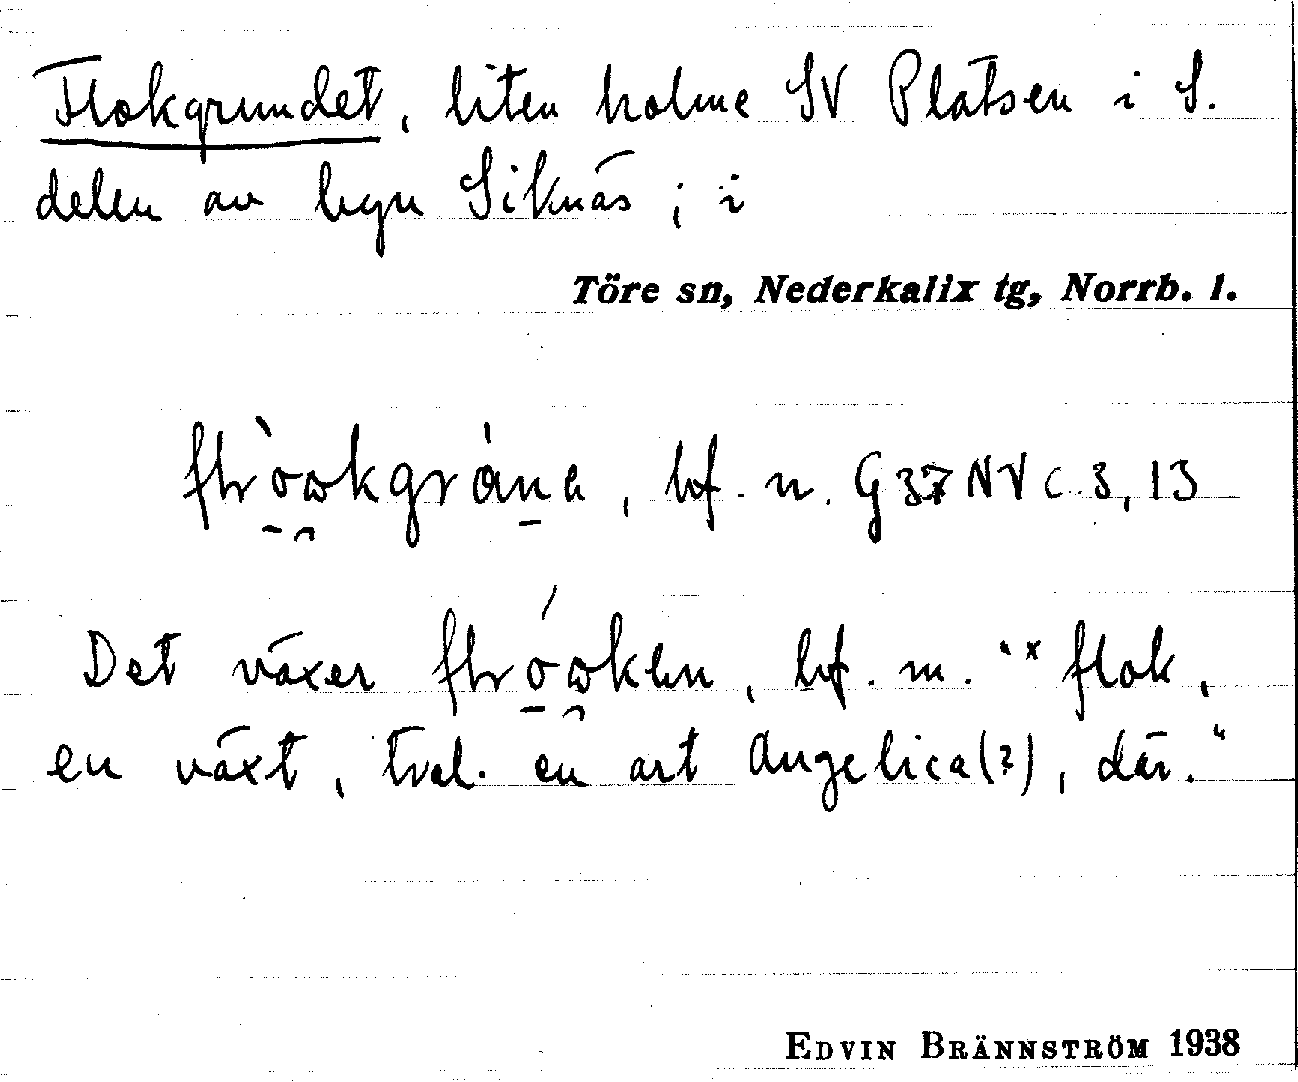 Flokgrundet, liten holme SV Platsen i S.
delen av byn Siknäs; i
Töre sn, Nederkalix tg, Norrb. l.
bf. n. G 37 NV c. 3, 13
Det växer bf. m. "× flok,
en växt, tval. en art Angelica(?), där."
EDVIN BRÄNNSTRÖM 1938